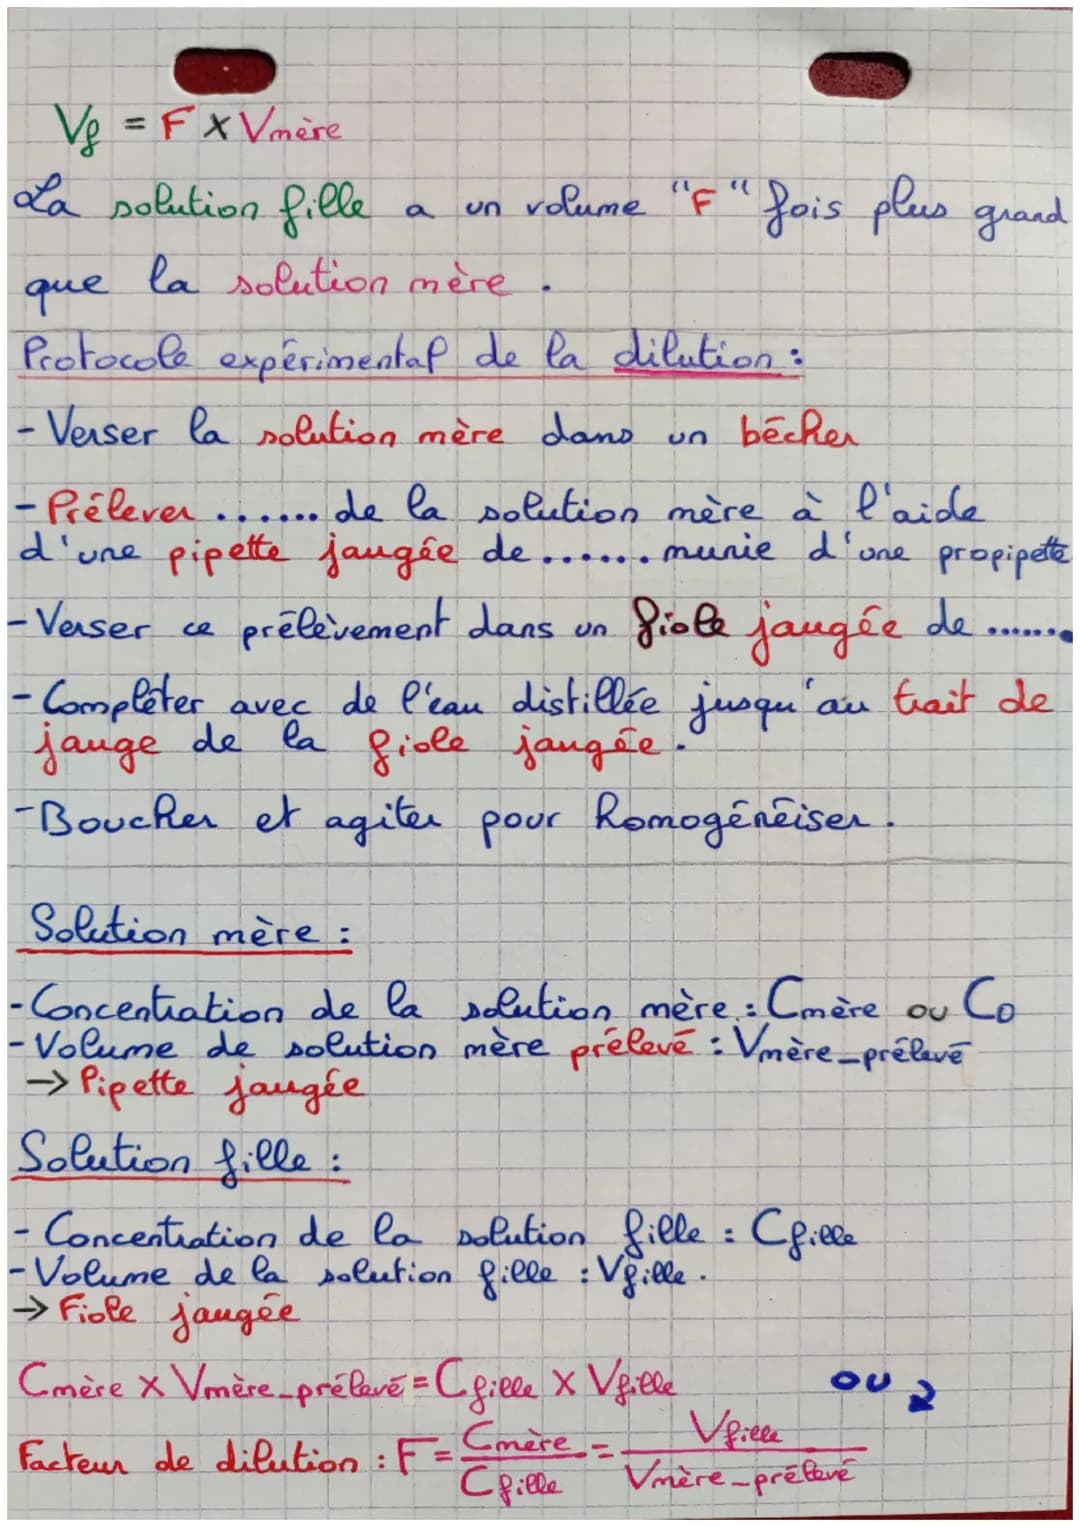 Vf = F X Vmère
La solution fille a un volume "F" fois plus grand
que la solution mère.
Protocole expérimental de la dilution :
- Verser la solution mère dans un bécher
- Prélever ....... de la solution mère à l'aide
d'une pipette jaugée de ....... munie d'une propipette
- Verser ce prélèvement dans un fiole jaugée de .......
- Compléter avec de l'eau distillée jusqu'au trait de
jauge de la fiole jaugée.
- Boucher et agiter pour homogénéiser.
Solution mère :
- Concentration de la solution mère : Cmère ou C0
- Volume de solution mère prélevé : Vmère_prélevé
→ Pipette jaugée
Solution fille :
- Concentration de la solution fille : Cfille
- Volume de la solution fille : Vfille.
→ Fiole jaugée
Cmère X Vmère_prélevé = Cfille X Vfille ou
Facteur de dilution : F = Cmère / Cfille = Vfille / Vmère_prélevé